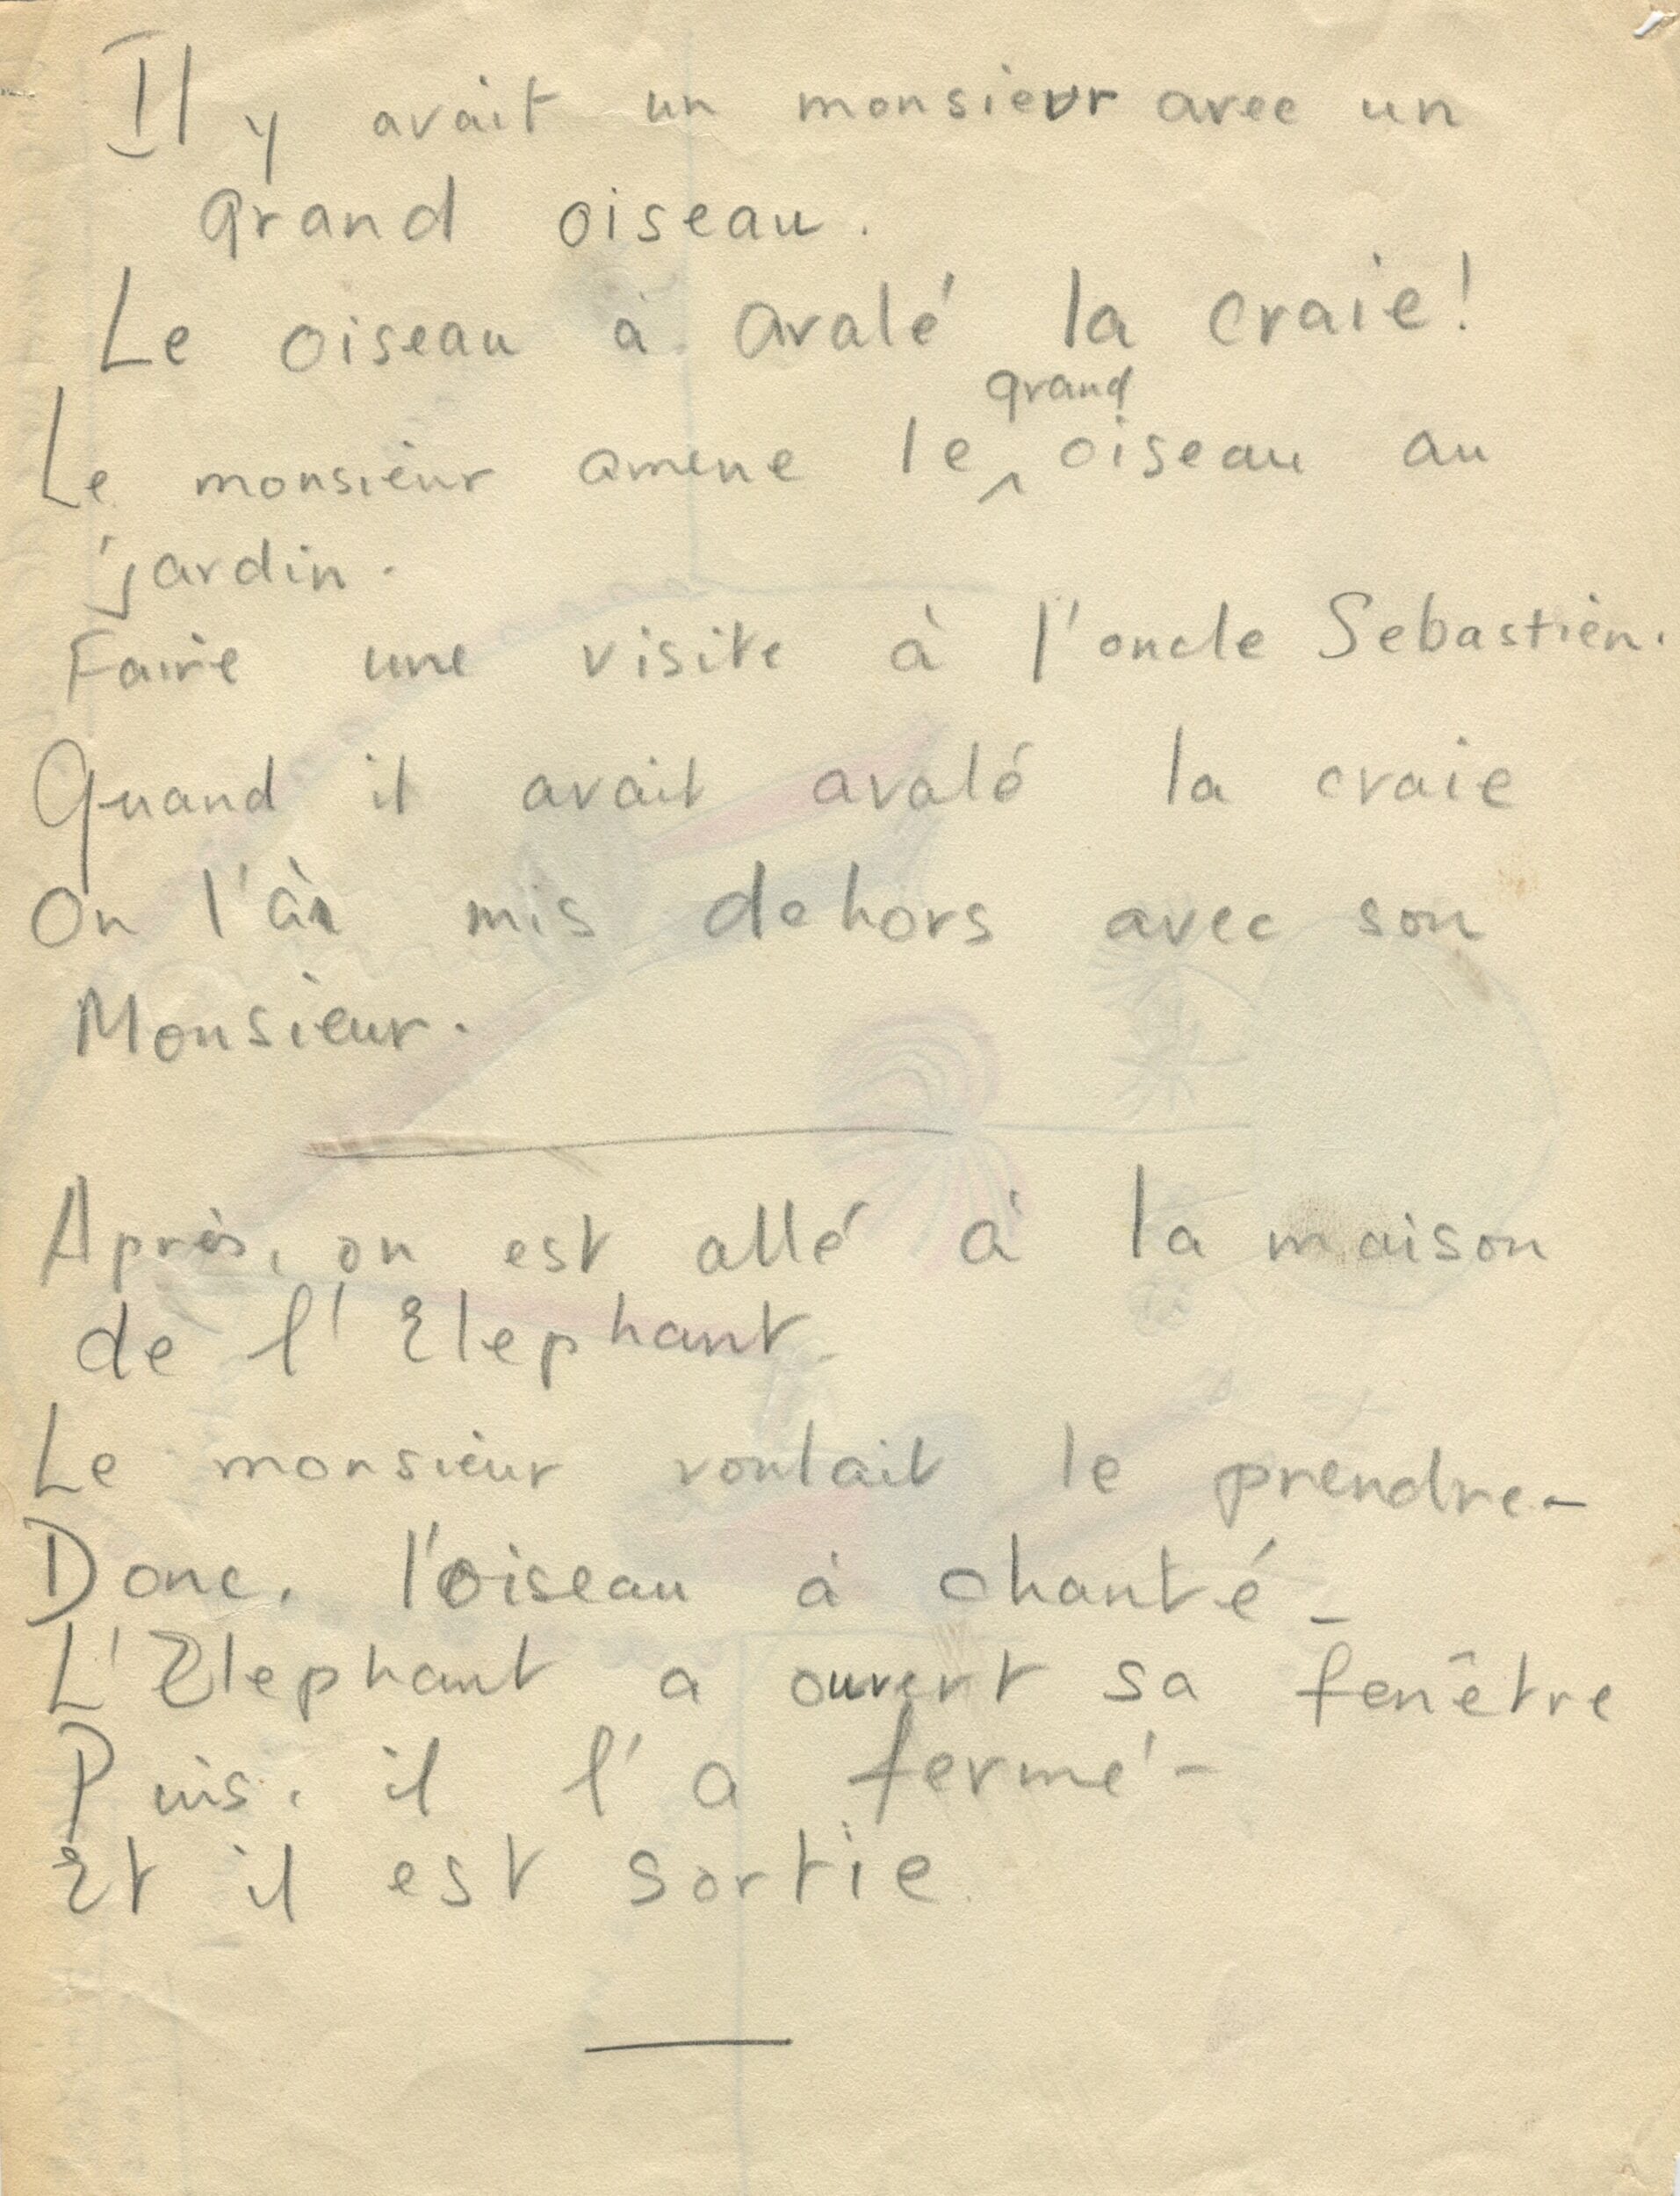 Il y avait un monsieur avec un
grand oiseau.
Le oiseau à avalé la craie!
Le monsieur amene le grand oiseau au
jardin.
Faire une visite à l'oncle Sebastien.
Quand il avait avalé la craie
On l'à mis dehors avec son
Monsieur.
Après, on est allé à la maison
de l'Elephant.
Le monsieur voulait le prendre-
Donc, l'oiseau à chanté-
L'Elephant a ouvert sa fenêtre
Puis, il l'a fermé-
Et il est sortie.